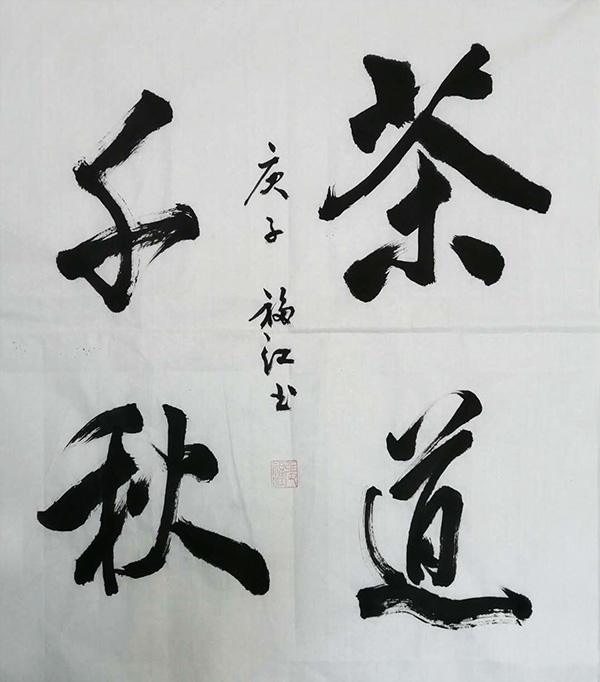 茶道
千秋
庚子 福江书